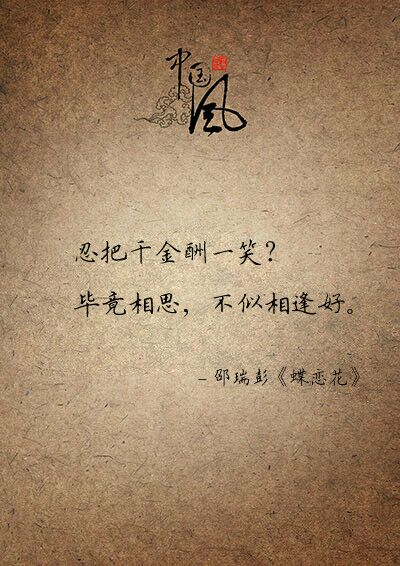 中国风
忍把千金酬一笑？
毕竟相思，不似相逢好。
- 邵瑞彭《蝶恋花》